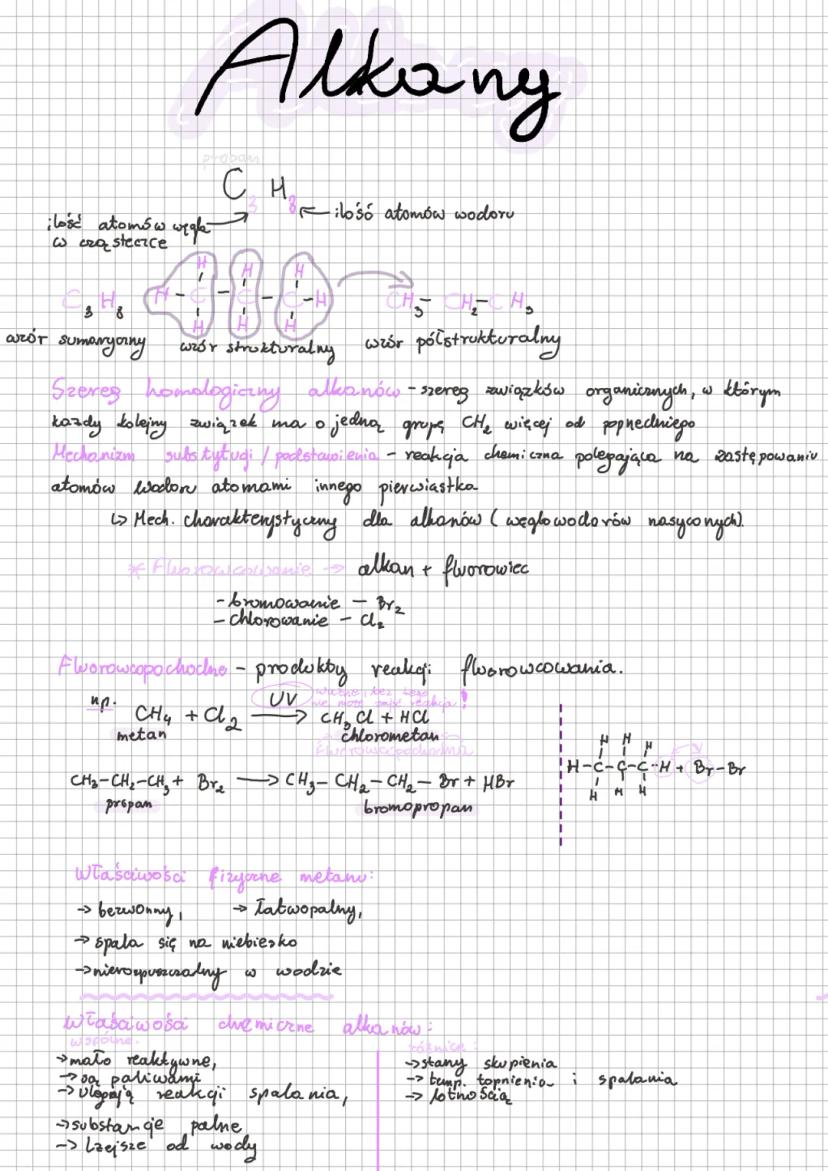 Alkany
propan
C3 H8
ilość atomów węgla
w cząsteczce
ilość atomów wodoru
H H H
C3 H8 H-C-C-C-H CH3- CH2-CH3
H H H
wzór sumaryczny wzór strukturalny wzór półstrukturalny
Szereg homologiczny alkanów - szereg związków organicznych, w którym
każdy kolejny związek ma o jedną grupę CH2 więcej od poprzedniego
Mechanizm substytucji / podstawienia - reakcja chemiczna polegająca na zastępowaniu
atomów wodoru atomami innego pierwiastka
↳ Mech. charakterystyczny dla alkanów (węglowodorów nasyconych).
* Fluorowcowanie → alkan + fluorowiec
- bromowanie - Br2
- chlorowanie - Cl2
Fluorowcopochodne - produkty reakcji fluorowcowania.
np. CH4 + Cl2 UV → CH3Cl + HCl
ważne, bez tego
nie może zajść reakcja!
metan chlorometan
fluorowcopochodna
H H H
H-C-C-C-H + Br-Br
H H H
CH3-CH2-CH3 + Br2 → CH3-CH2-CH2-Br + HBr
propan bromopropan
Właściwości fizyczne metanu:
→ bezwonny, → łatwopalny,
→ spala się na niebiesko
→ nierozpuszczalny w wodzie
Właściwości chemiczne alkanów:
wspólne:
→ mało reaktywne,
→ są paliwami
→ ulegają reakcji spalania,
→ substancje palne
→ lżejsze od wody
różnice:
→ stany skupienia
→ temp. topnienia i spalania
→ lotnością